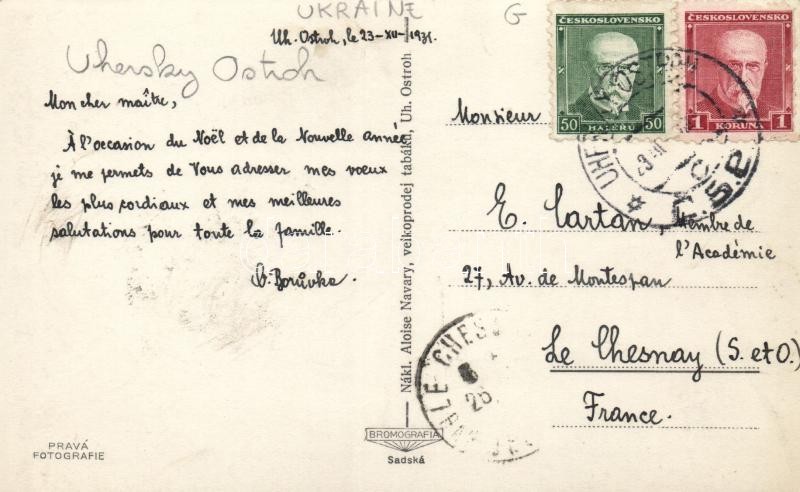 UKRAINE
G
Uh. Ostroh, le 23-XII-1931.
Uhersky Ostroh
Mon cher maître,
À l'occasion du Noël et de la Nouvelle année
je me permets de Vous adresser mes voeux
les plus cordiaux et mes meilleures
salutations pour toute la famille.
O. Borůvka.
PRAVÁ
FOTOGRAFIE
Nákl. Aloise Navary, velkoprodej tabáku, Uh. Ostroh
BROMOGRAFIA
Sadská
ČESKOSLOVENSKO
50 HALÉŘŮ 50
ČESKOSLOVENSKO
1 KORUNA 1
Monsieur
E. Cartan, Membre de
l'Académie
27, Av. de Montespan
Le Chesnay (S. et O.)
France.
LE CHES
26